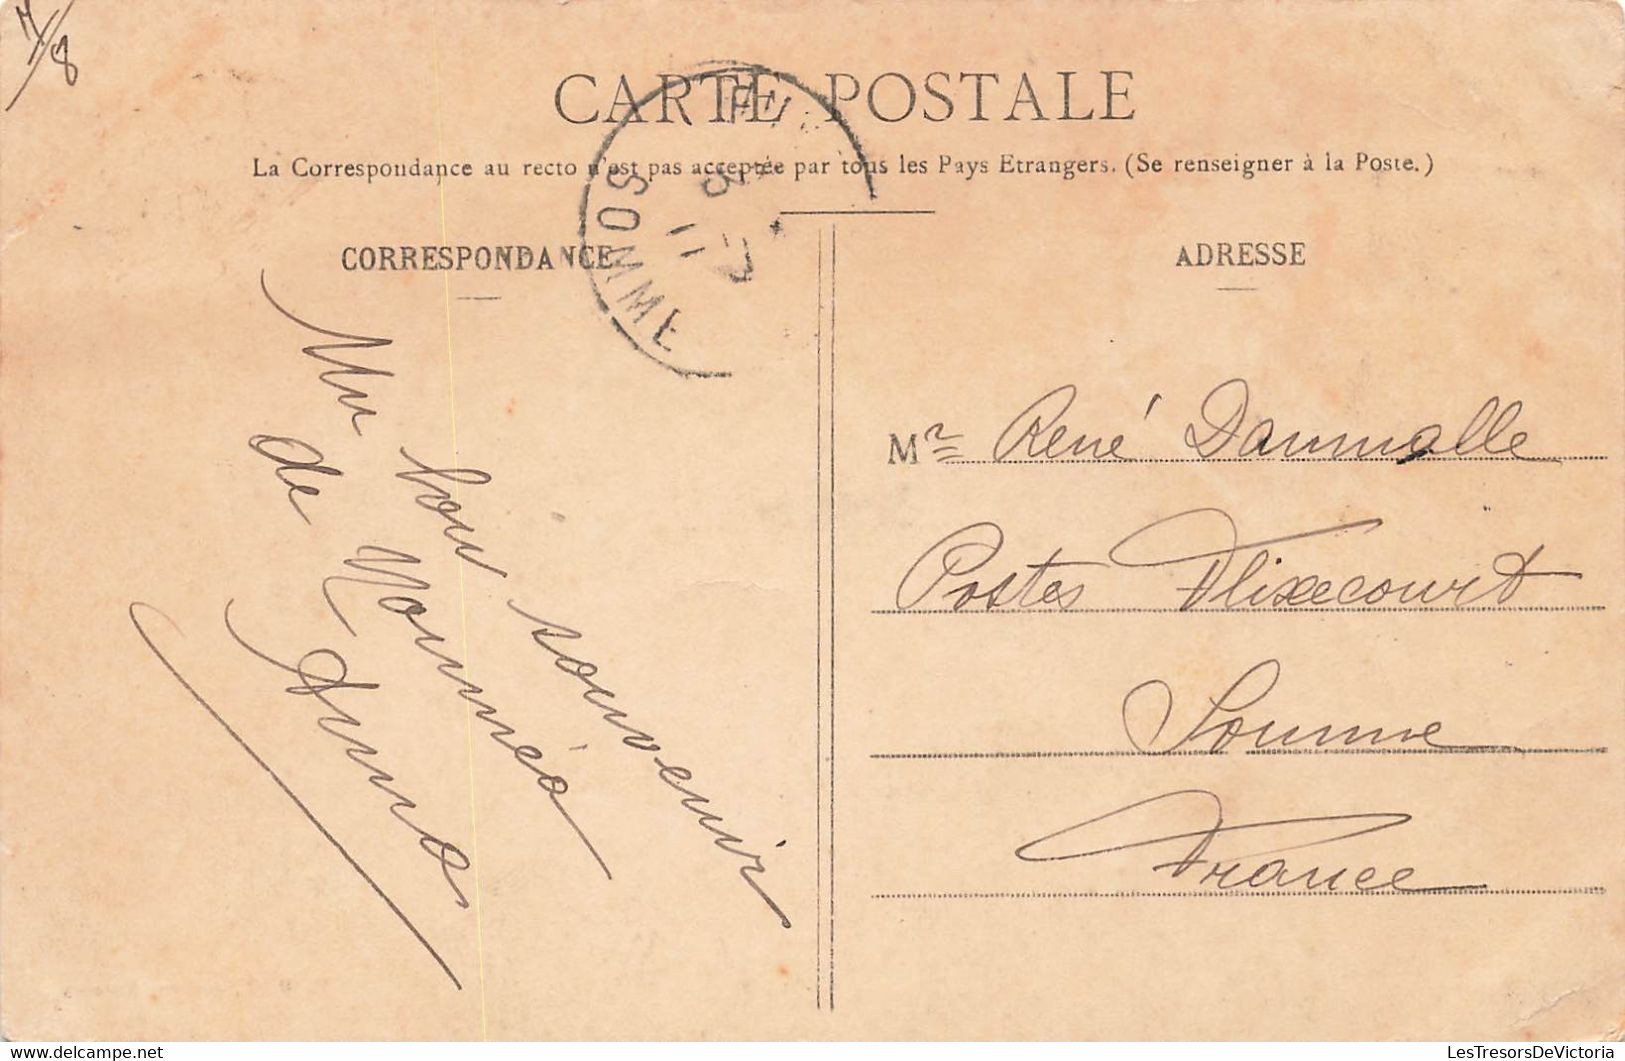 CARTE POSTALE
La Correspondance au recto n'est pas acceptée par tous les Pays Etrangers. (Se renseigner à la Poste.)
CORRESPONDANCE
Un bon souvenir
de Nouméa
ADRESSE
Mr René
Postes Flixecourt
Somme
France
SOMME
11
LesTresorsDeVictoria